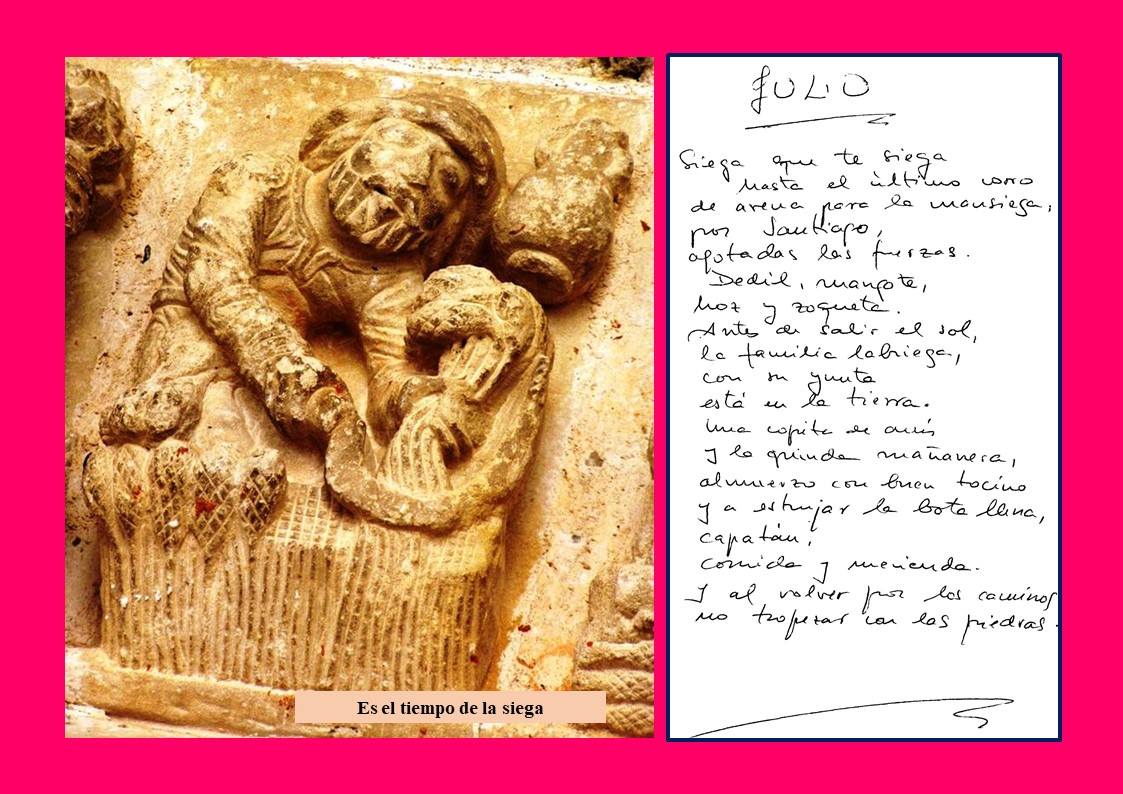 Es el tiempo de la siega
JULIO
Siega que te siega
hasta el último corro
de avena para la mansiega,
por Santiago,
agotadas las fuerzas.
Dedil, mangote,
hoz y zoqueta.
Antes de salir el sol,
la familia labriega,
con su yunta
está en la tierra.
Una copita de anís
y la guinda mañanera,
almuerzo con buen tocino
y a estrujar la bota llena,
capatán,
comida y merienda.
Y al volver por los caminos
no tropezar con las piedras.